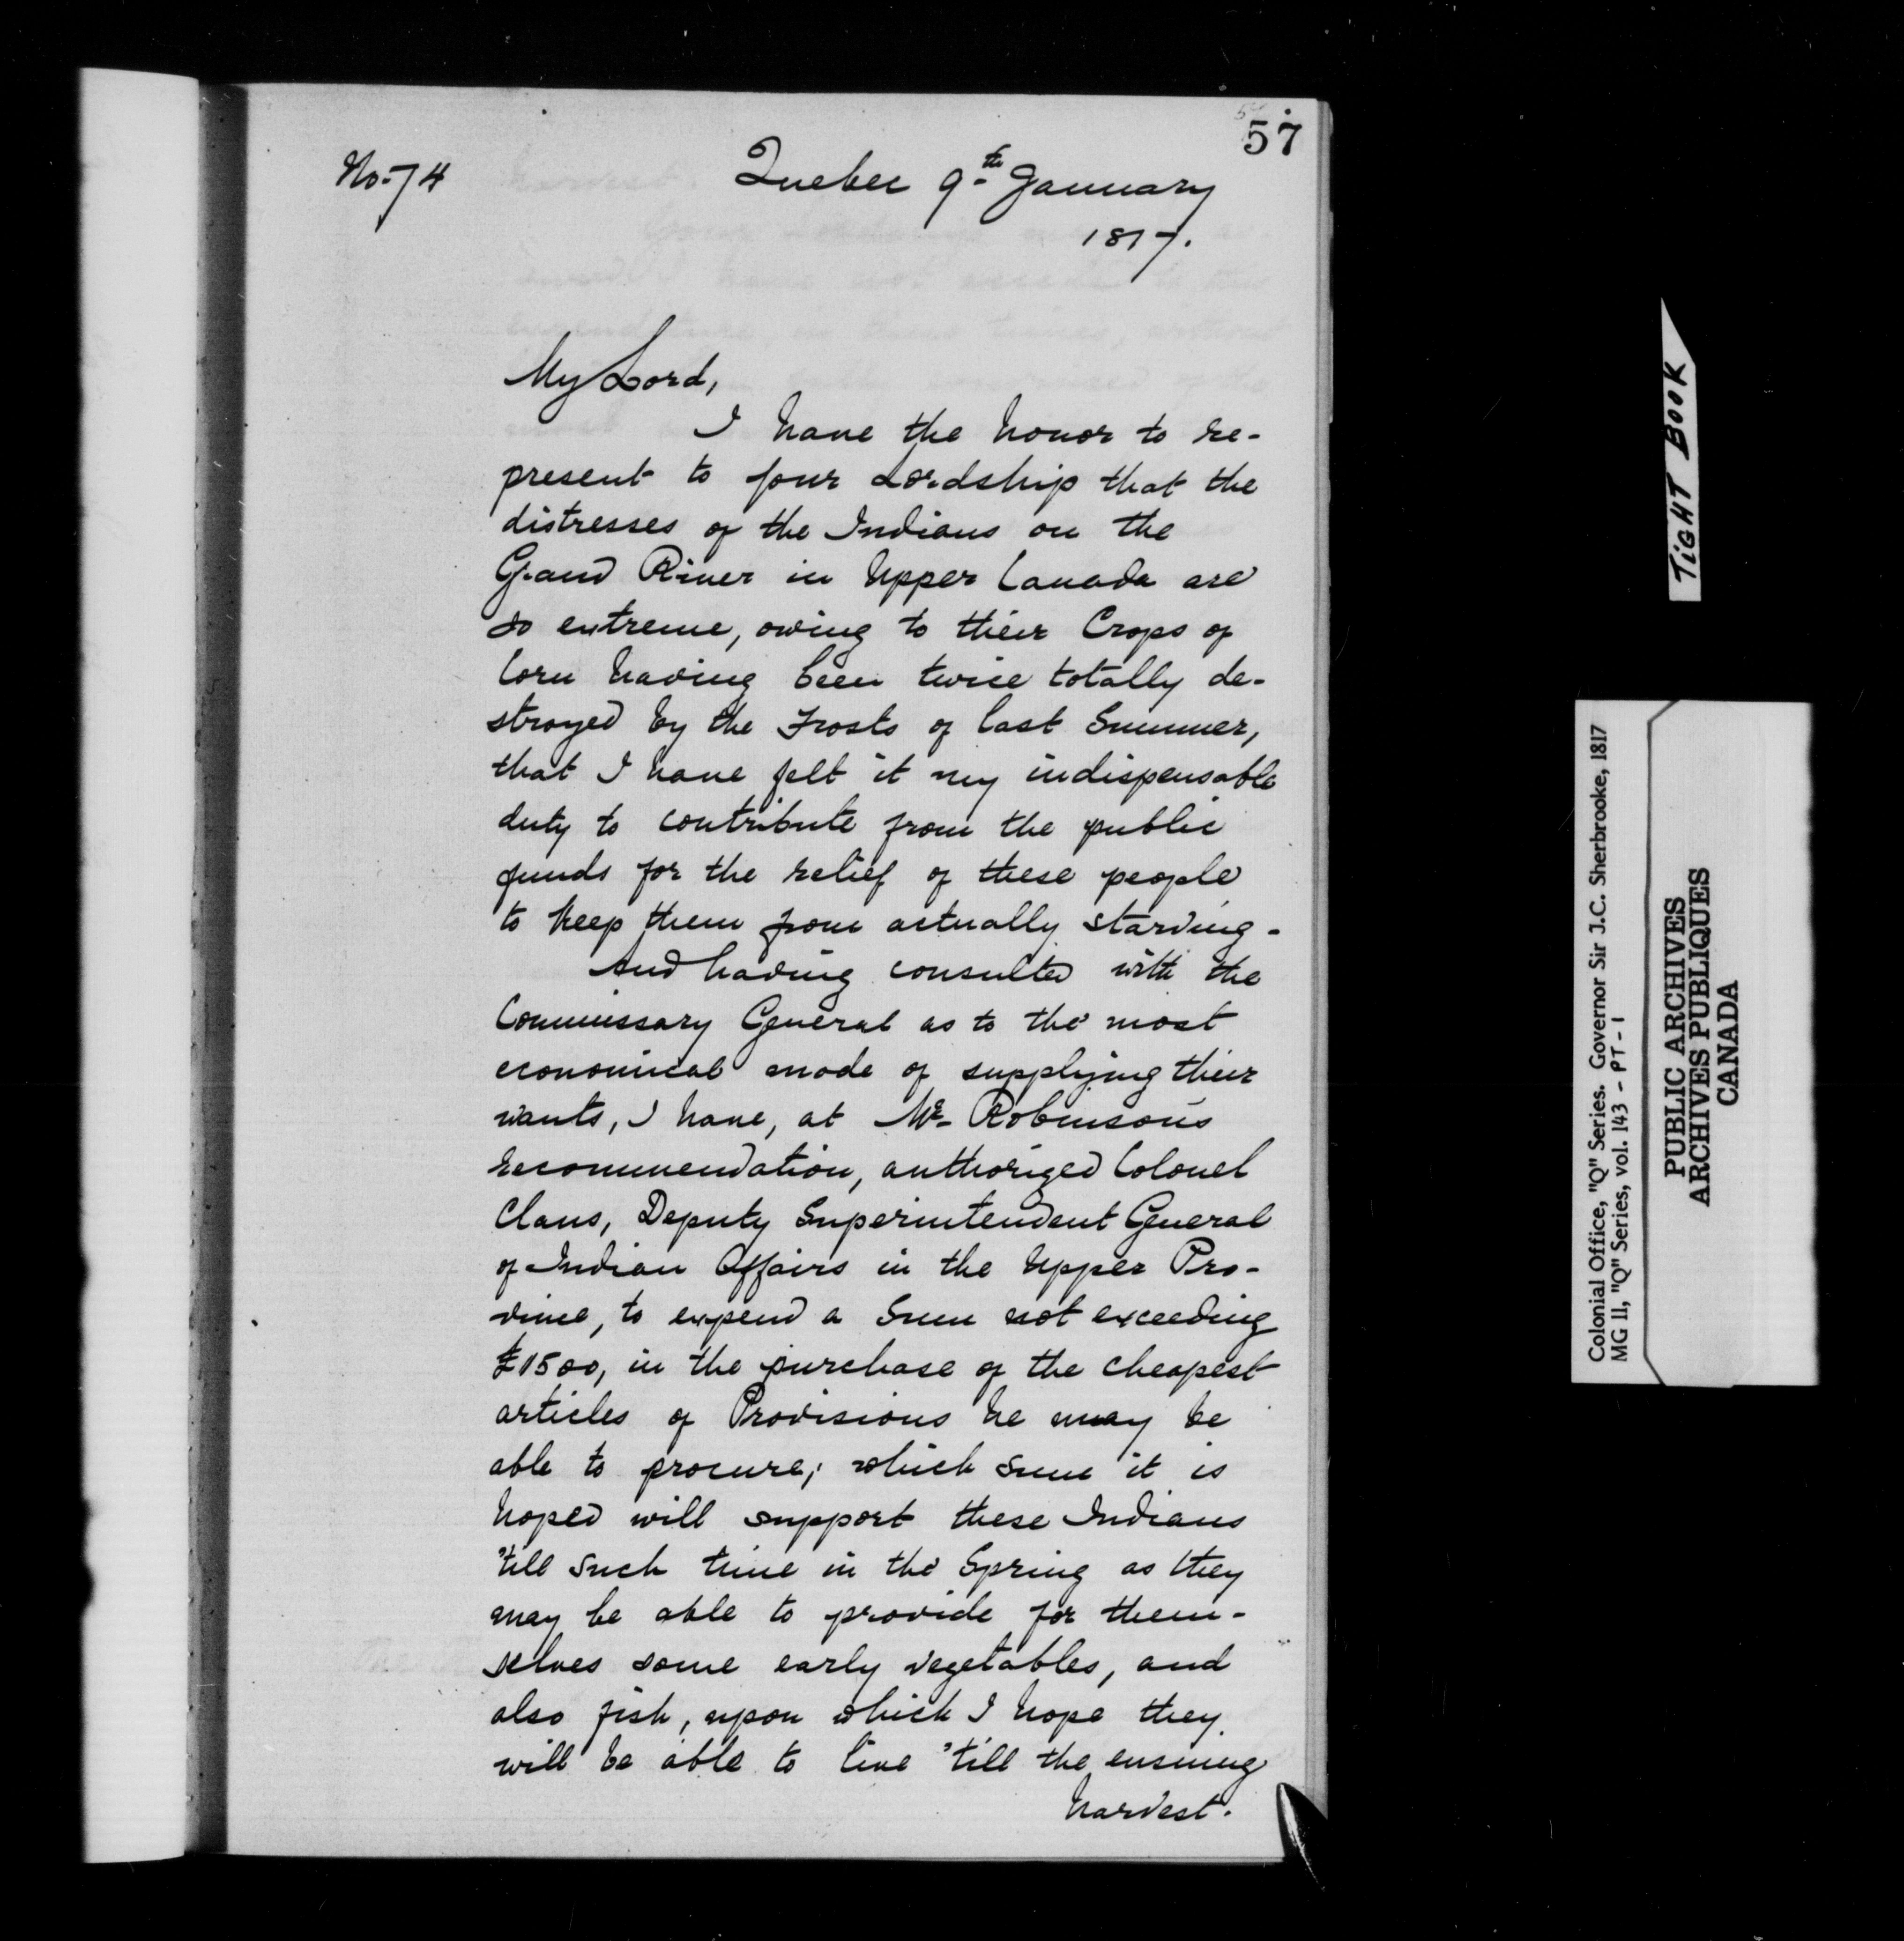 57
No. 74
Quebec 9th January
1817.
My Lord,
I have the honor to re-
present to your Lordship that the
distresses of the Indians on the
Grand River in Upper Canada are
so extreme, owing to their Crops of
Corn having been twice totally de-
stroyed by the Frosts of last Summer,
that I have felt it my indispensable
duty to contribute from the public
funds for the relief of these people
to keep them from actually starving -
And having consulted with the
Commissary General as to the most
economical mode of supplying their
wants, I have, at Mr. Robinson's
recommendation, authorized Colonel
Claus, Deputy Superintendent General
of Indian Affairs in the Upper Pro-
vince, to expend a Sum not exceeding
£1500, in the purchase of the cheapest
articles of Provisions he may be
able to procure; which sum it is
hoped will support these Indians
'till such time in the Spring as they
may be able to provide for them-
selves some early vegetables, and
also fish, upon which I hope they
will be able to live 'till the ensuing
harvest.
TIGHT BOOK
Colonial Office, "Q" Series. Governor Sir J.C. Sherbrooke, 1817
MG 11, "Q" Series, vol. 143 - PT - 1
PUBLIC ARCHIVES
ARCHIVES PUBLIQUES
CANADA